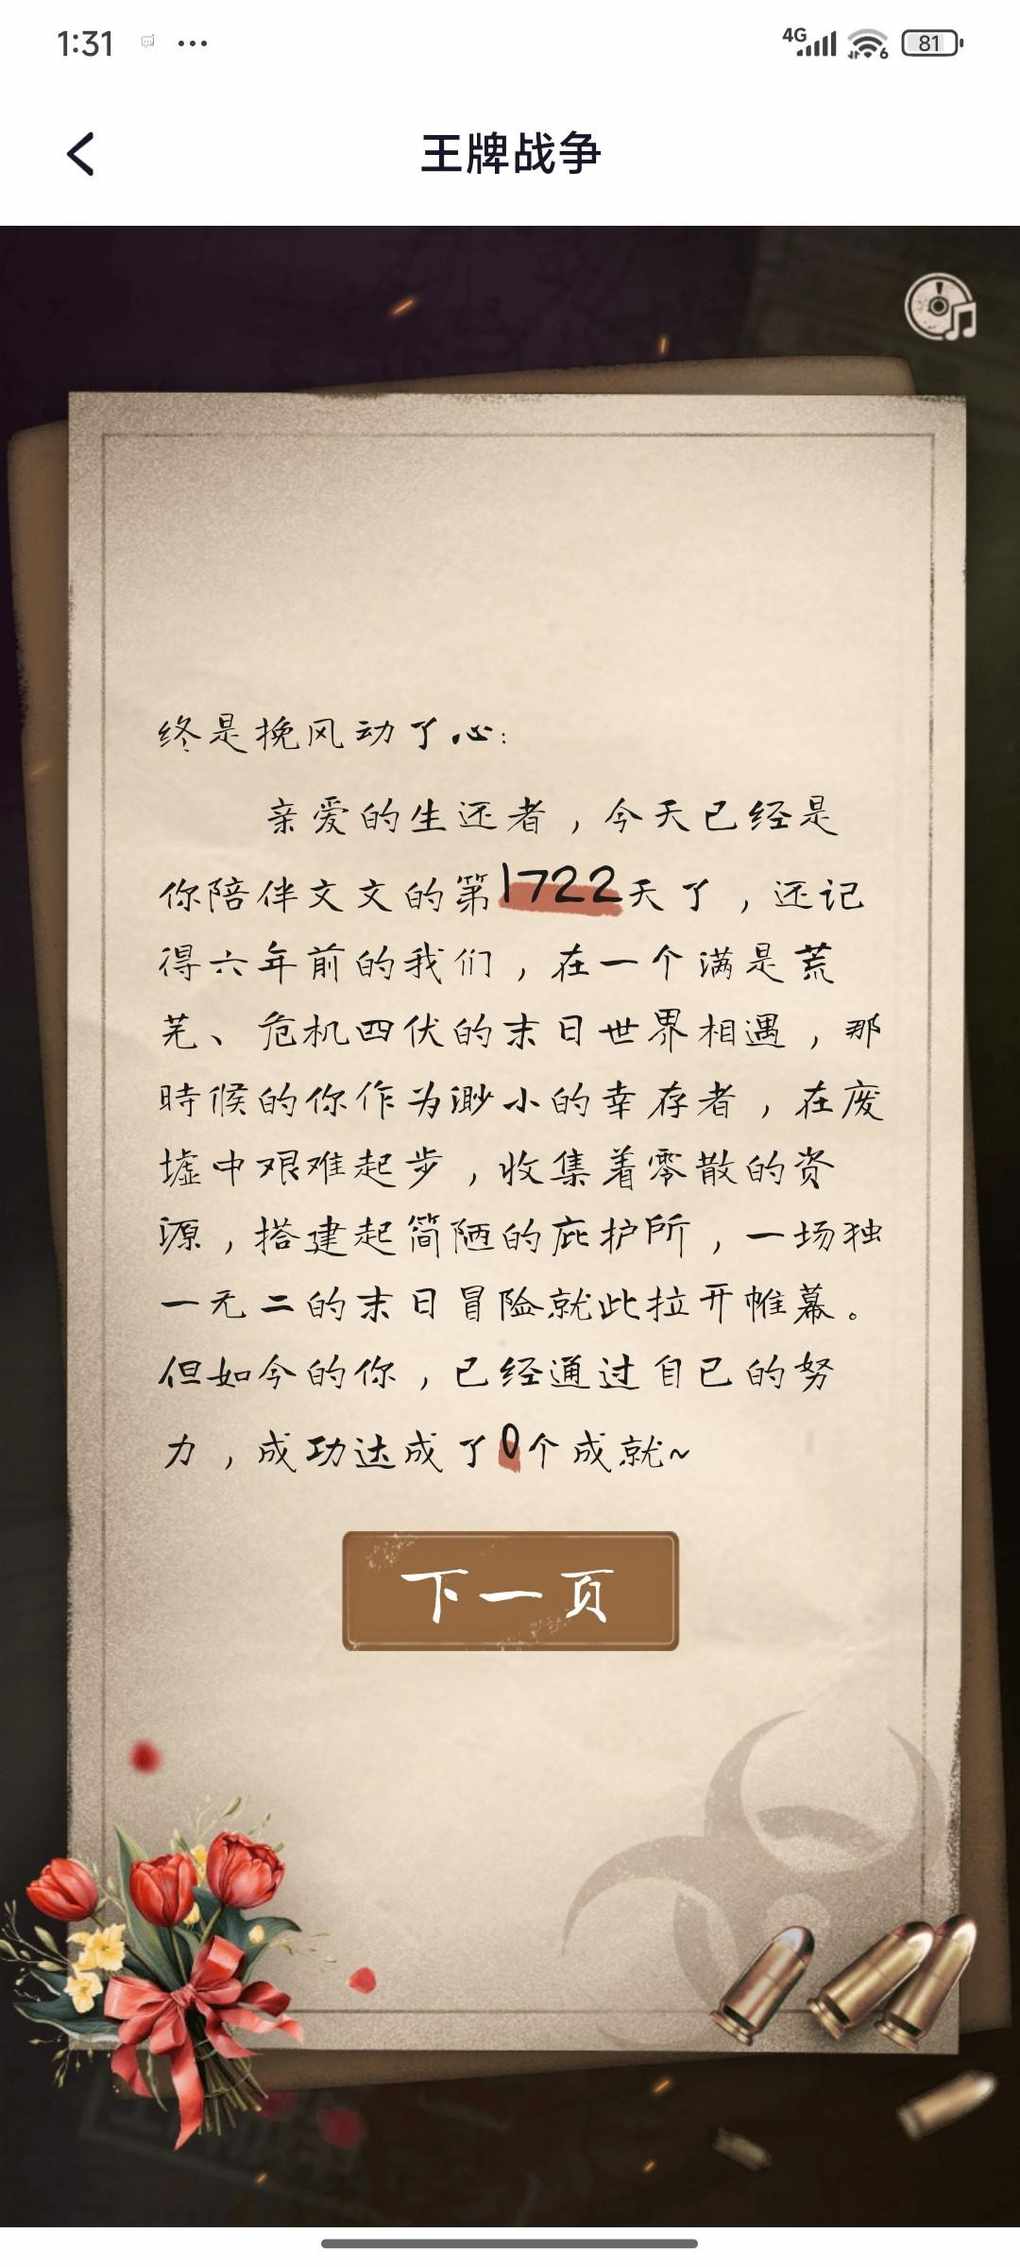 1:31
4G
6
81
王牌战争
终是挽风动了心:
亲爱的生还者，今天已经是
你陪伴文文的第1722天了，还记
得六年前的我们，在一个满是荒
芜、危机四伏的末日世界相遇，那
時候的你作为渺小的幸存者，在废
墟中艰难起步，收集着零散的资
源，搭建起简陋的庇护所，一场独
一无二的末日冒险就此拉开帷幕。
但如今的你，已经通过自己的努
力，成功达成了0个成就~
下一页